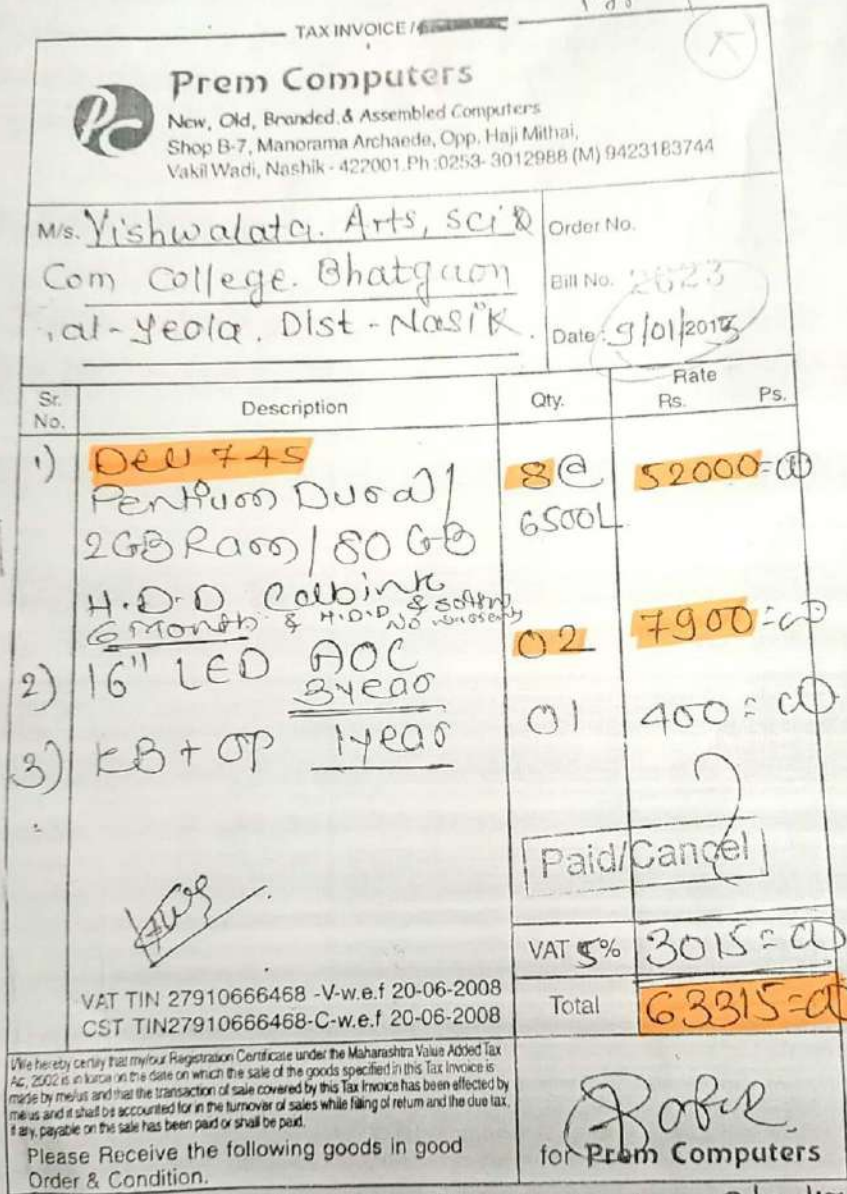 TAX INVOICE /
Prem Computers
PC
New, Old, Branded & Assembled Computers
Shop B-7, Manorama Archaede, Opp. Haji Mithai,
Vakil Wadi, Nashik - 422001.Ph :0253- 3012988 (M) 9423183744
M/s. Vishwalata. Arts, Sci &
Com College. Bhatgaon
al - Yeola. Dist - Nasik.
Order No.
Bill No. 2623
Date : 9/01/2013
Sr. No. Description Qty. Rate Rs. Ps.
1) Dell 745 8@ 52000=00
Pentium Dual / 6500
2GB Ram / 80 GB
H.D.D
6 Month & H.D.D &
2) 16" LED AOC 02 7900=00
3 year
3) KB + OP 1 year 01 400=00
Paid/Cancel
VAT 5% 3015=00
VAT TIN 27910666468 -V-w.e.f 20-06-2008
CST TIN27910666468-C-w.e.f 20-06-2008
Total 63315=00
I/We hereby certify that my/our Registration Certificate under the Maharashtra Value Added Tax
Ac, 2002 is in force on the date on which the sale of the goods specified in this Tax Invoice is
made by me/us and that the transaction of sale covered by this Tax Invoice has been effected by
me us and it shall be accounted for in the turnover of sales while filing of return and the due tax,
if any, payable on the sale has been paid or shall be paid.
Please Receive the following goods in good
Order & Condition.
for Prem Computers